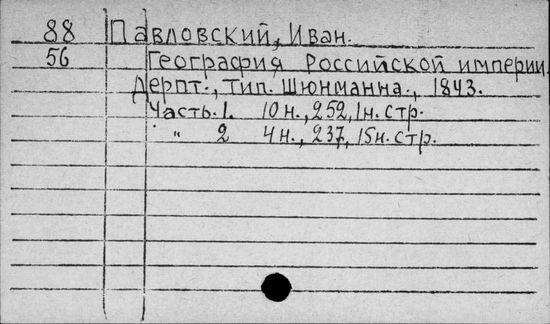 88 Павловский, Иван.
56 География Российской империи.
Дерпт., тип. Шюнманна., 1843.
Часть. 1. 10 н., 252, 1 н. стр.
" 2 4 н., 237, 15 н. стр.